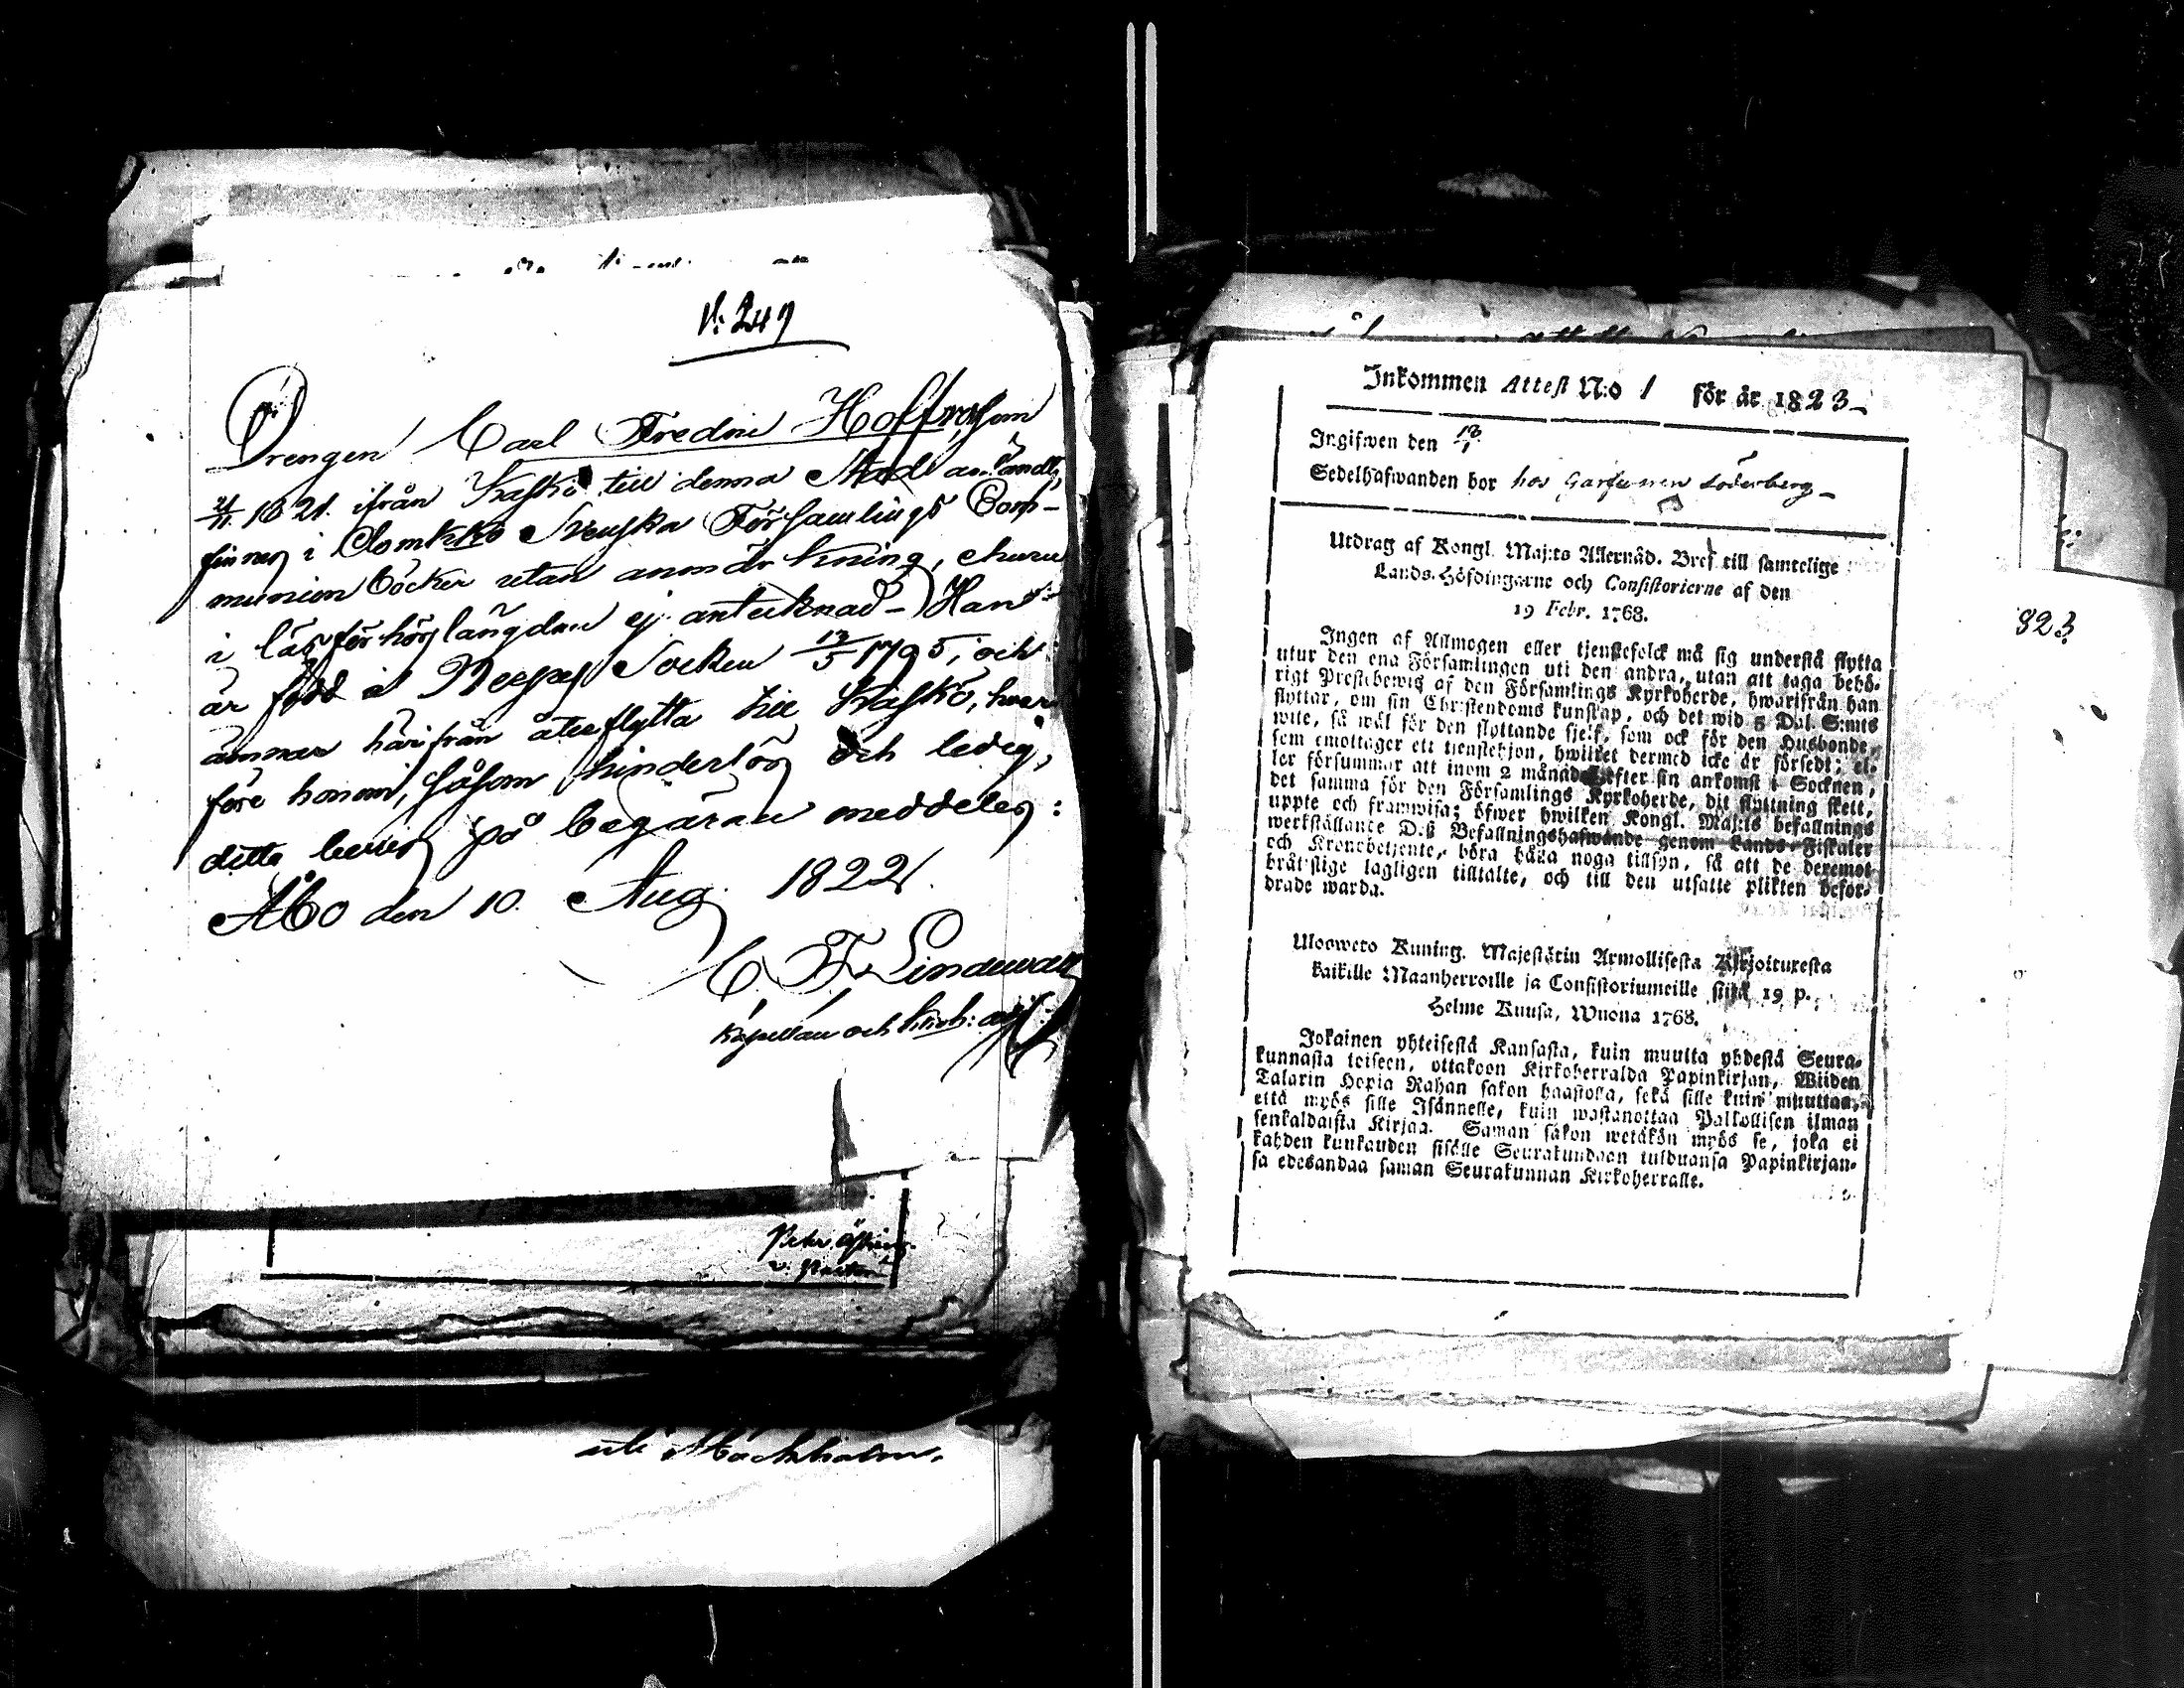 N: 249
Drengen Carl Fredric Hoffren, som
1821. ifrån Kaskö till denna Stad anländt,
finnes i Domkko Svenska Församlings Com-
munion böcker utan anmärkning, churu
i läsförhörs längden ej antecknad – Han
är född i Socken 13/5 1795, och
ämnar härifrån återflytta till Kaskö, hvar
före honom, såsom hinderlös och ledig,
detta bevis på begäran meddeles:
Åbo den 10. Aug. 1822.
C. F. Lindewall
Kapellan och
Peter
v. Pastor
uti Stockholm.
Inkommen Attest N:o 1 för år 1823-
Ingifwen den 18/1
Sedelhafwanden bor hos Garfwaren Söderberg-
Utdrag af Kongl. Maj:ts Allernåd. Bref till samtelige
Lands-Höfdingarne och Consistorierne af den
19 Febr. 1768.
Ingen af Allmogen eller tjenstefolck må sig understå flytta
utur den ena Församlingen uti den andra, utan att taga behö-
rigt Prestebewis af den Församlings Kyrkoherde, hwarifrån han
flyttar, om sin Christendoms kunskap, och det wid 5 Dal. S:mts
wite, så wäl för den flyttande sjelf, som ock för den Husbonde,
som emottager ett tienstehjon, hwilket dermed icke är försedt; el-
ler försummar att inom 2 månader efter sin ankomst i Socknen,
det samma för den Församlings Kyrkoherde, dit flyttning skett,
uppte och framwisa; öfwer hwilken Kongl. Maj:ts befallnings
werkställande Deß Befallningshafwande genom Lands-Fiskaler
och Kronobetjente, böra hålla noga tillsyn, så att de deremot
brätslige lagligen tilltalte, och till den utsatte plikten befor-
drade warda.
Uloswero Kuning. Majestätin Armollisesta Kirjoituxesta
kaikille Maanherroille ja Consistoriumeille siitä 19 p.
Helme Kuusa, Wuona 1768.
Jokainen yhteisestä Kansasta, kuin muutta yhdestä Seura-
kunnasta toiseen, ottakoon Kirkoherralda Papinkirjan, Wiiden
Talarin Hopia Rahan sakon haastolla, sekä sille kuin muuttaa,
että myös sille Isännelle, kuin wastanottaa Palkollisen ilman
senkaldaista Kirjaa. Saman sakon wetäkön myös se, joka ei
kahden kunkauden sisälle Seurakundaan tulduansa Papinkirjan-
sa edesandaa saman Seurakunnan Kirkoherralle.
823